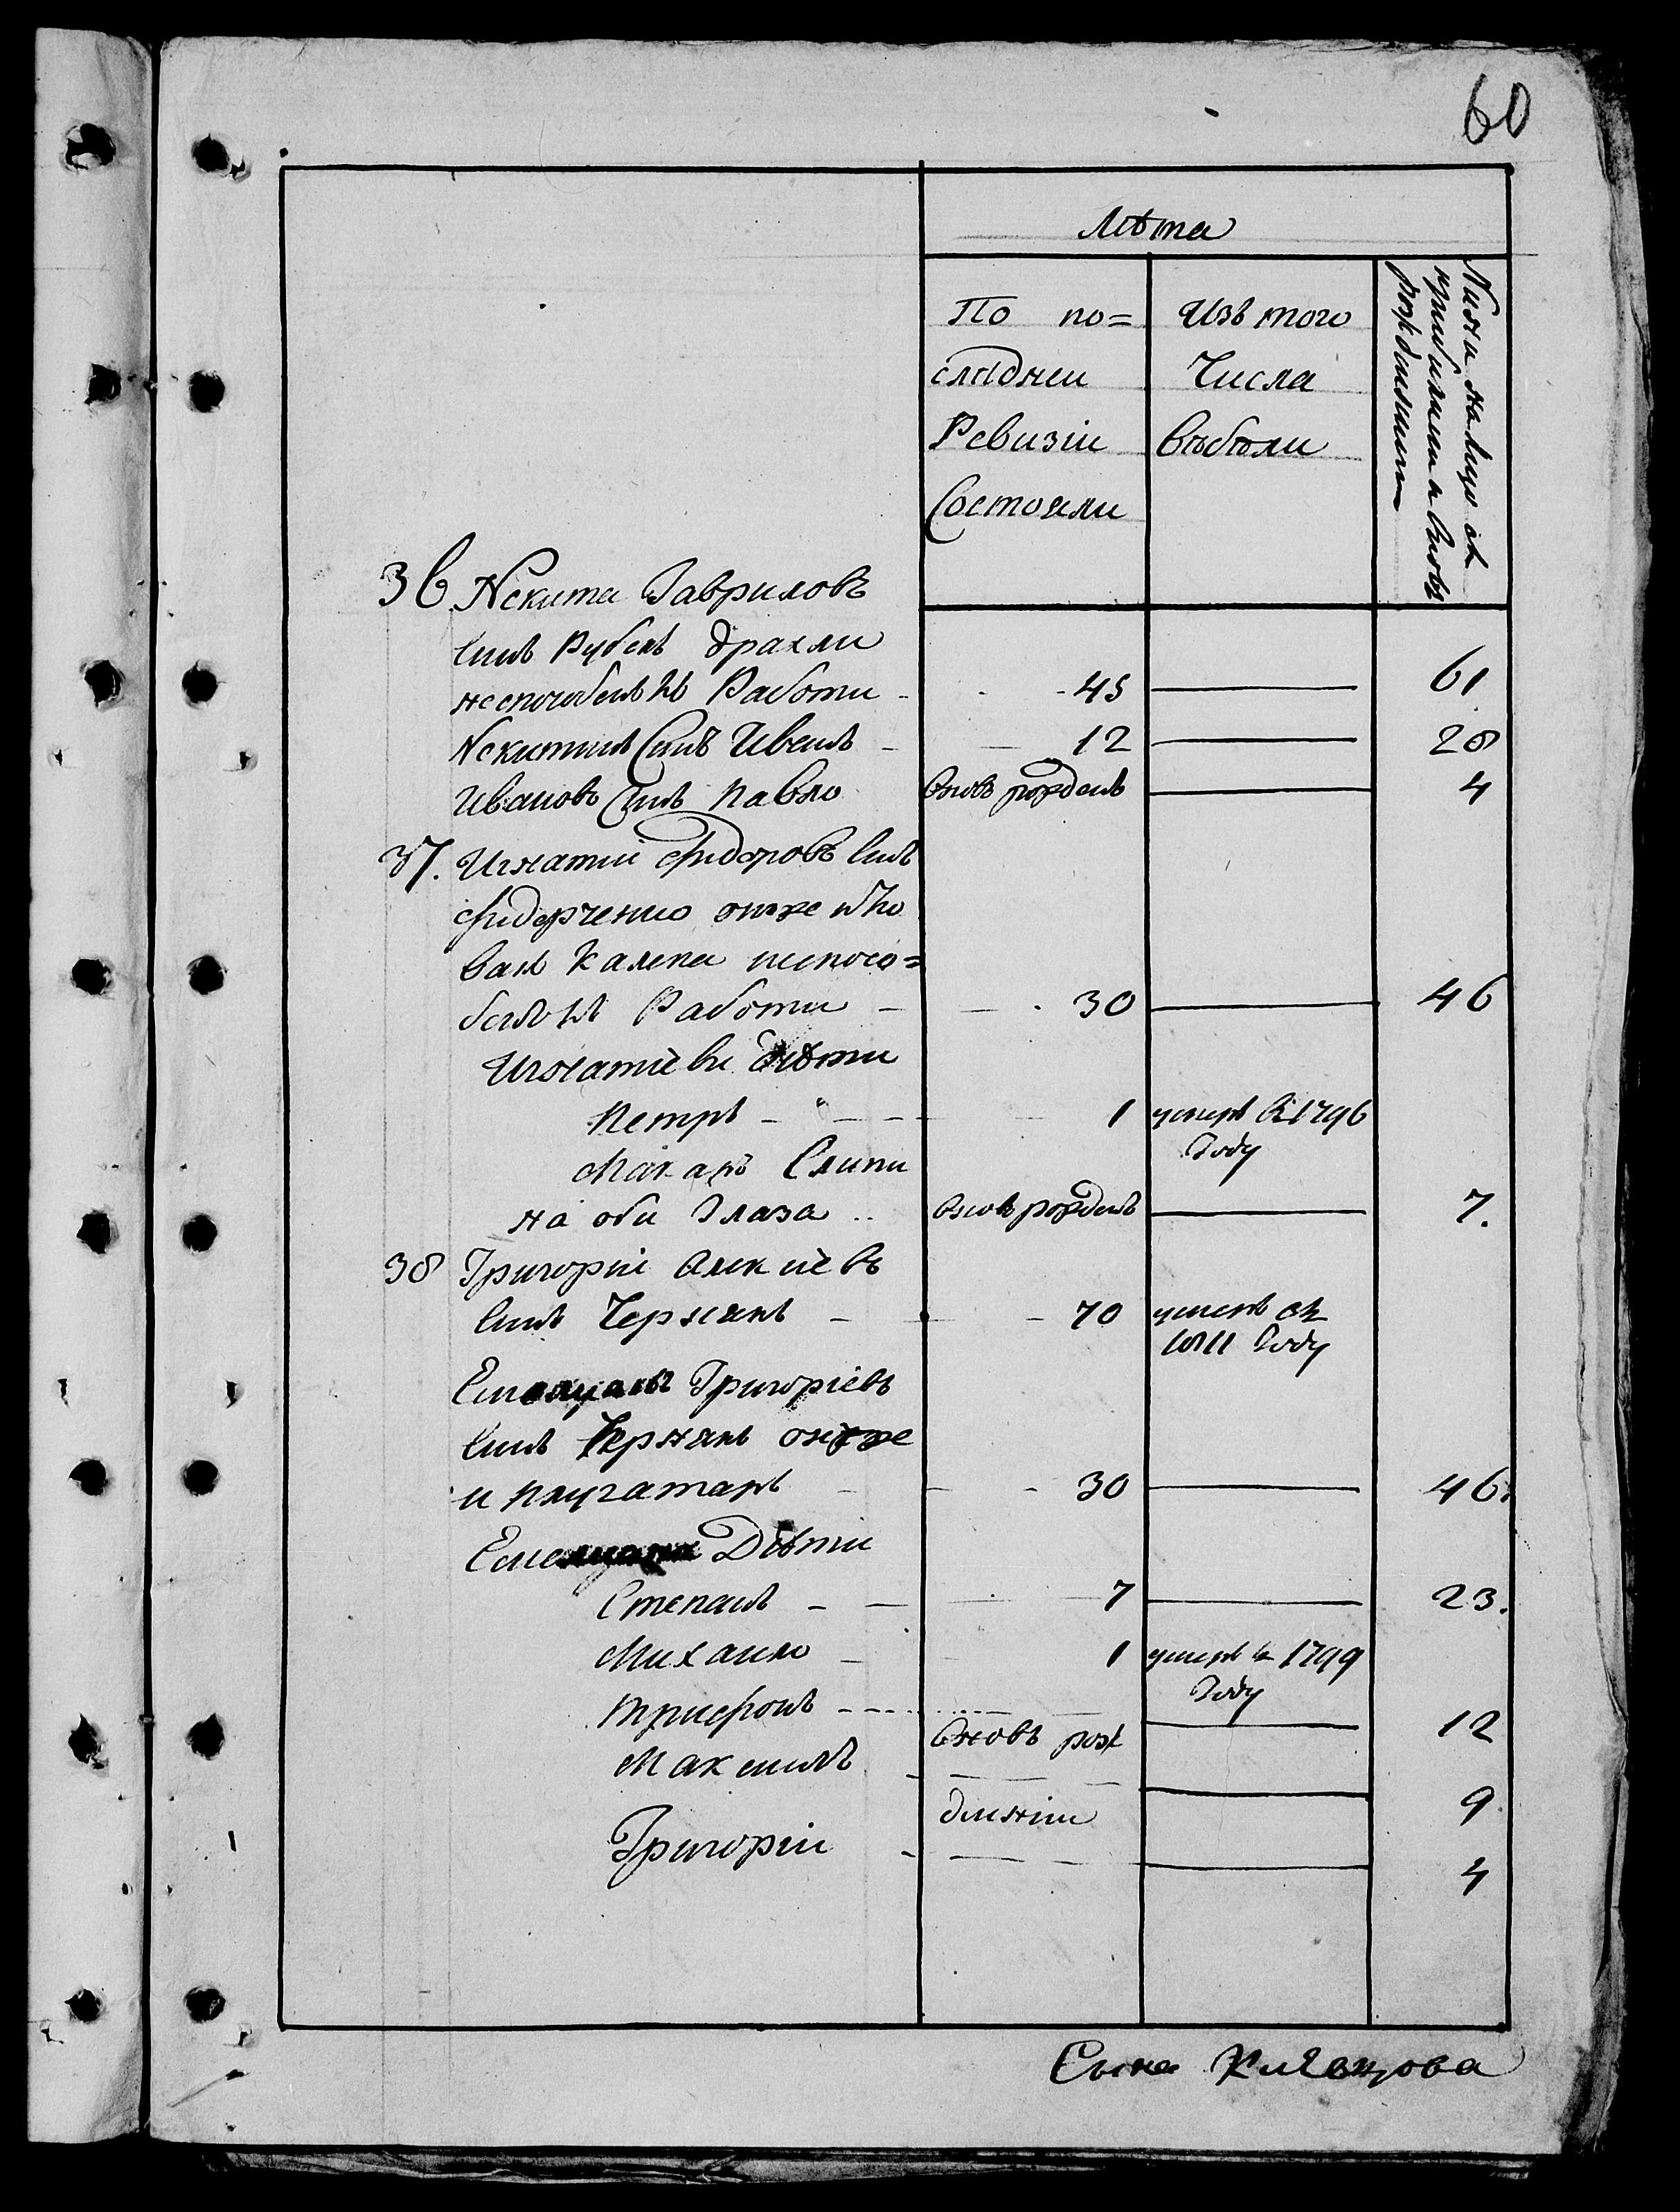 60
Лѣта
По по=
слѣднеи
Ревизіи
Состояли
Изъ того
Числа
выбыли
Нинѣ на лицо съ
прибилими и вновь
рожденими
36 Некита Гавриловъ
синъ Рубенъ драхли
неспособенъ къ Работи 45 61
Некитинъ Синъ Иванъ 12 28
Ивановъ Синъ Павло вновь рожденъ 4
37. Игнатіи Фидоровъ синъ
Фидорченко онже
Калека неспосо=
бенъ къ Работи 30 46
Игнатіеви дѣти
Петръ 1 умеръ въ 1796
Году
Макаръ Слипи
на оби Глаза вновь рожденъ 7.
38 Григоріи Алексіевъ
синъ Чернякъ 70 умеръ въ
1811 Году
Григоріевъ
синъ Чернякъ онже
и плугатарь 30 46.
Дѣти
Степанъ 7 23.
Михаило 1 умеръ в 1799
Году
Трифонъ 12
Вновь рож
Максимъ 9
дениіи
Григоріи 4
Сына Клевцова